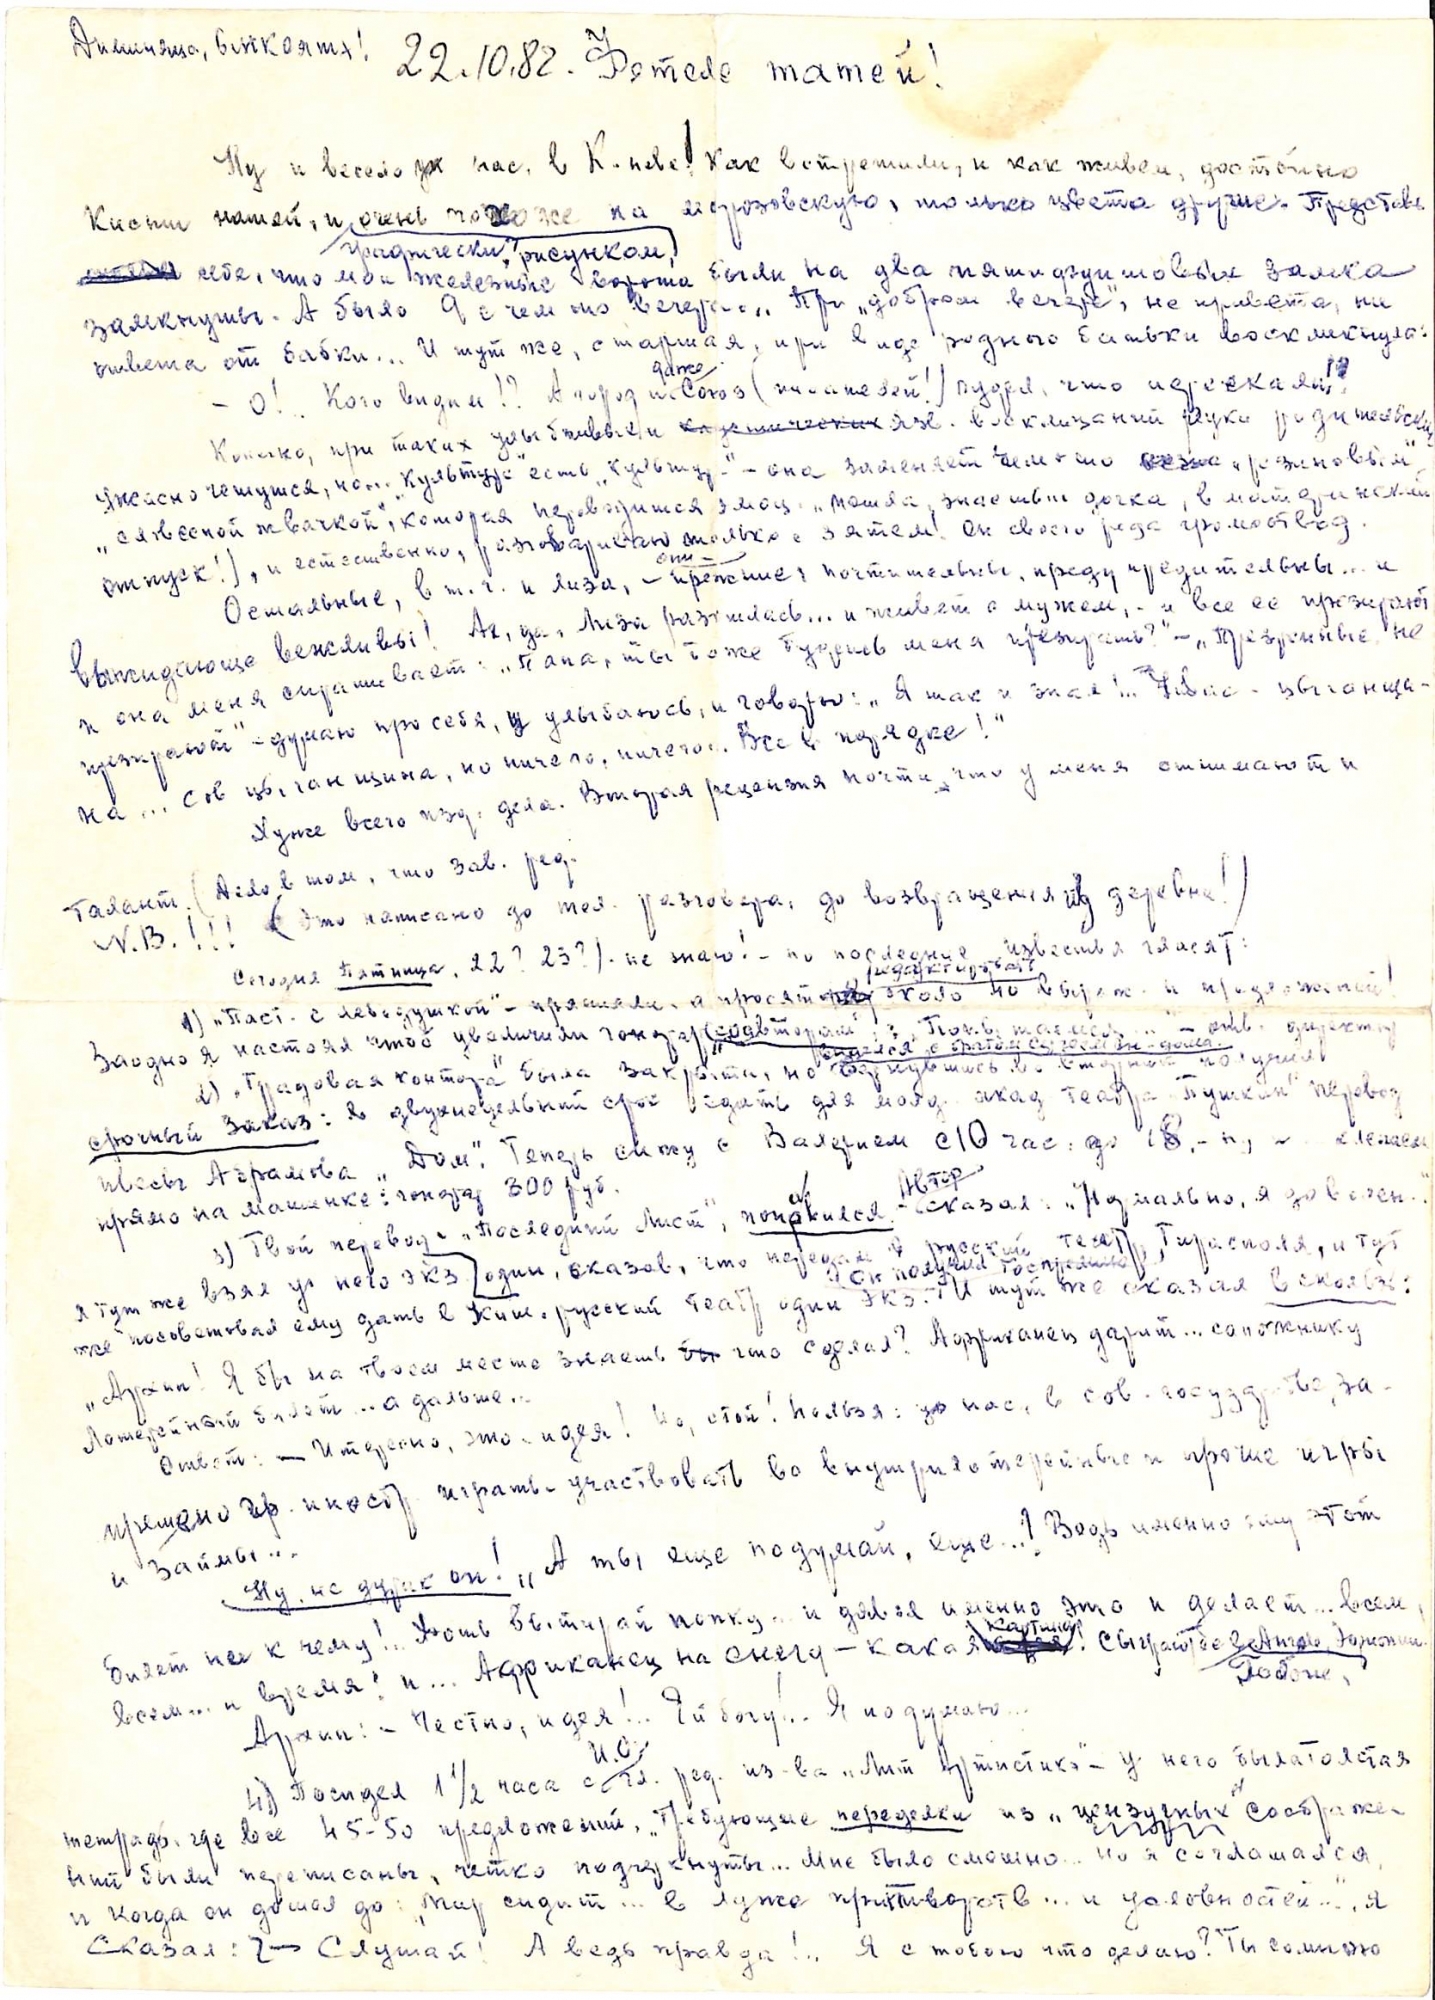 22.10.82. Фетеле татей!
Ну и весело у нас, в К-неве! Как встретили, и как живем, достойно
нашей, и очень похоже на морозовскую, только цвета другие. Представь
графически, рисунком,
себе, что мои железные ворота были на два пятидюймовых замка
замкнуты. А было 9 с чем-то вечера... При „добром вечере", не привета, ни
ответа от бабки... И тут же, старшая, при виде родного батьки воскликнула:
даже
– О!.. Кого видим!? А город и Союз (писателей!) гудел, что
Конечно, при таких улыбчивых и язв. восклицаний руки родительские
ужасно чешутся, но... „культура" есть „культура" – она заменяет чем-то „резиновым",
„словесной жвачкой", которая переводится „пошла, знаешь дочка, в материнский
отпуск!), и естественно, разговариваю только с зятем! Он своего рода громоотвод.
они –
Остальные, в т. ч. и Лиза, – прежние: почтительны, предупредительны... и
выжидающе вежливы! Ах, да, Лиза разошлась... и живет с мужем, – и все ее презирают
и она меня спрашивает: „Папа, ты тоже будешь меня презирать?" – „Презренные не
презирают" – думаю про себя, улыбаюсь, и говорю: „Я так и знал!.. У вас – цыганщи-
на... Сов цыганщина, но ничего, ничего... Все в порядке!"
Хуже всего изд. дела. Вторая рецензия почти что у меня отнимают и
талант. (Дело в том, что зав. ред.
N.B.!!! (Это написано до тел. разговора, до возвращения из деревни!)
Сегодня пятница, 22? 23?). не знаю! – но последние известия гласят:
редактировать
1) „Паст. с лебедушкой" – приняли, а просят около 40 выраж. и предложений!
Заодно я настоял чтоб увеличили гонорар – отв. директор
2) „Трудовая контора" была закрыта, но вернувшись во второй получил
срочный заказ: в двухнедельный срок сдать для молд. акад театра „Пушкин" перевод
пьесы Абрамова „Дом". Теперь сижу с Валерием с 10 час. до 18.
прямо на машинке: гонорар 300 руб.
Автор
3) Твой перевод „Последний лист", понравился. – сказал: „Нормально, я доволен."
Я тут же взял у него экз один, сказав, что передам в русский театр, Тирасполя, и тут
же посоветовал ему дать в Киш. русский театр один экз. И тут же сказал вскользь:
„Архип! Я бы на твоем месте знаешь что сделал? Африканец дарит... сапожнику
лотерейный билет... а дальше...
Ответ: – Интересно, это – идея! Но, стой! Нельзя: у нас, в сов. государстве, за-
прещено гр. иностр играть – участвовать во внутрилотерейные и прочие игры
и займы...
Ну, не дурак он! „А ты еще подумай, еще...! Ведь именно ему этот
билет не к чему!.. Хоть вытирай попку... и дядя именно это и делает... всем,
картина!
всем... и время! и... Африканец на снегу – какая
Архип: – Честно, идея!.. Ей богу!.. Я подумаю...
И.О.
4) Посидел 1 1/2 часа с гл. ред. из-ва „Лит Артистикэ" – у него была толстая
тетрадь, где все 45-50 предложений, „требующие переделки из „цензурных" соображе-
ний были переписаны, четко подчеркнуты... Мне было смешно... но я соглашался,
и когда он дошел до: „Мир сидит... в луже притворств... и условностей...", я
сказал: – Слушай! А ведь правда!.. Я с тобою что делаю? Ты со мною